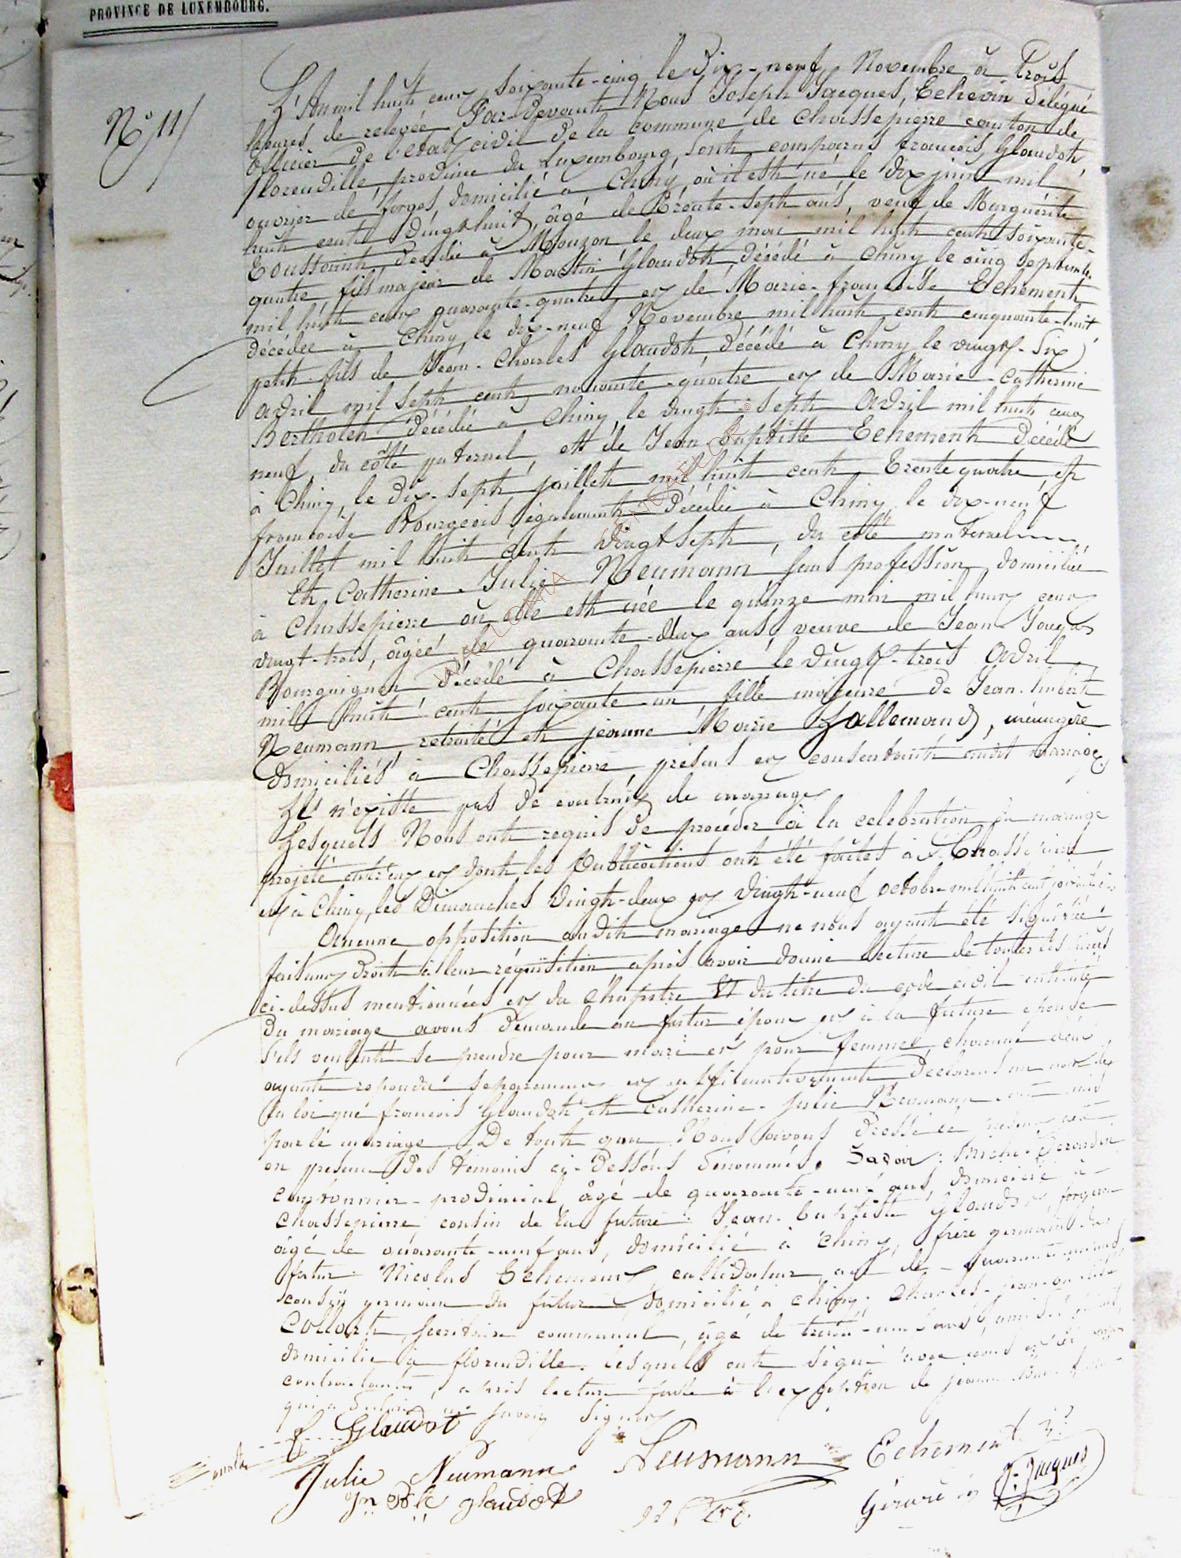 PROVINCE DE LUXEMBOURG.
N° 11
L'An mil huit cent soixante-cinq le dix-neuf Novembre à trois
heures de relevée Par Devant Nous Joseph Jacques, Echevin délégué
officier de l'état civil de la commune de Chassepierre canton de
florenville, province du Luxembourg, sont comparus francois Glaudot
ouvrier de forges domicilié à Chiny, où il est né le dix juin mil
huit cent vingt huit, âgé de Trente-sept ans, veuf de Marguérite
Toussaint, décédée à Mouzon le deux mai mil huit cent soixante-
quatre fils majeur de Martin Glaudot, décédé à Chiny le cinq septembre
mil huit cent quarante-quatre et de Marie-francoise Echement
décédée à Chiny le dix-neuf Novembre mil huit cent cinquante-huit
petit-fils de Jean-Charles Glaudot, décédé à Chiny le vingt-six
avril mil sept cent nonante-quatre et de Marie-Catherine
Bertholet décédée à Chiny le vingt-sept avril mil huit cent
neuf, du côté paternel, et de Jean Baptiste Echement décédé
à Chiny, le dix-sept juillet mil huit cent trente quatre et
francoise Bourgeois, également décédée à Chiny le dix-neuf
Juillet mil huit cent vingt sept, du côté maternel
Et Catherine-Julie Neumann sans profession, domiciliée
à Chassepierre où elle est née le quinze mai mil huit cent
vingt-trois, âgée de quarante-deux ans, veuve de Jean Jacques
Bourguignon décédé à Chassepierre le vingt-trois avril
mil huit cent soixante-un fille majeure de Jean
Neumann, retraité et jeanne Marie Lallemand, ménagère
domiciliés à Chassepierre présens et consentant audit mariage.
Il n'existe pas de contrat de mariage
Lesquels Nous ont requis de procéder à la celebration du mariage
projété entre eux et dont les Publications ont été faites à Chassepierre
et à Chiny, les Dimanches vingt-deux et vingt-neuf octobre mil huit cent
Aucune opposition audit mariage ne nous ayant été signifiée
faisant droit à leur réquisition après avoir donné lecture de toutes les pièces
ci-dessus mentionnées et du chapitre VI du titre du code civil intitulé
du mariage avons demandé au futur époux et à la future épouse
s'ils veulent se prendre pour mari et pour femme, chacun d'eux
ayant repondu separement et affirmativement declarons au nom de
la loi que francois Glaudot et Catherine-Julie Neumann sont unis
par le mariage. De tout quoi Nous avons dressé ce
en presence des témoins ci-Dessous dénommés. Savoir:
cantonnier-provincial, âgé de quarante ans domicilié à
Chassepierre cousin de la future: Jean-Baptiste Glaudot, forgeron
âgé de quarante-neuf ans, domicilié à Chiny, frère germain du
futur: Nicolas Echement, cultivateur, agé de quarante
cousin germain du futur domicilié à Chiny: Charles
Collart, secrétaire communal, âgé de trente ans, ami
domicilié à florenville. lesquels ont signé avec nous et
contractants, après lecture faite à l'exception de jeanne
qui a savoir signer
f Glaudot
Julie Neumann
Neumann
Echement
Jn Bte Glaudot
J. Jacques